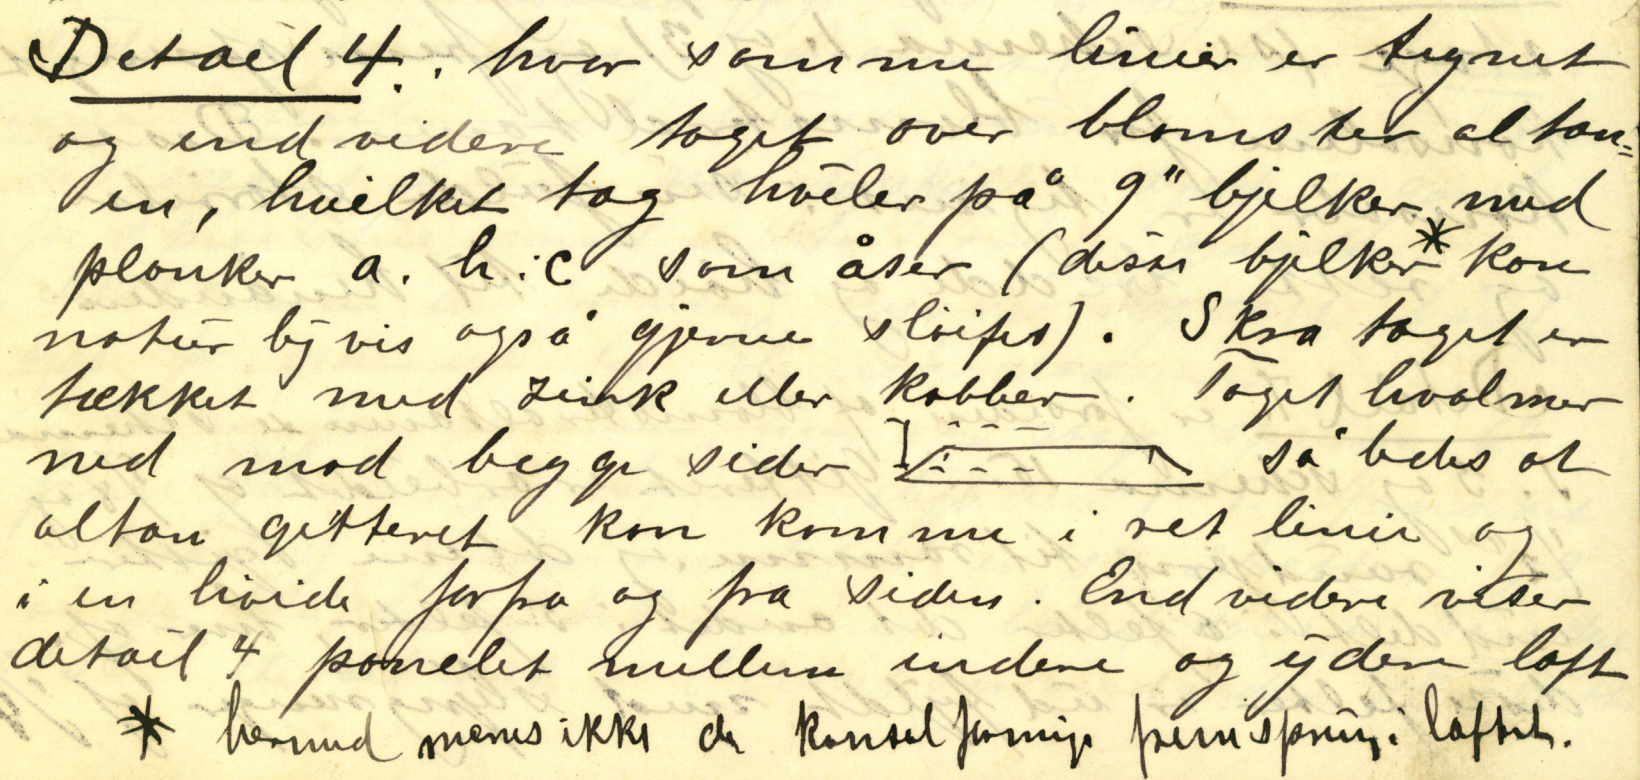 Detail 4. hvor samme linier er tegnet
og endvidere taget over blomsteraltan=
en, hvilket tag hviler på 9" bjelker med
planker a. h:c som åser (disse bjelker* kan
naturligvis også gjerne sløifes). Skrataget er
tækket med zink eller kobber. Taget hvalmer
ned mod begge sider så ledes at
altan gitteret kan komme i ret linie og
i en høide forfra og fra siden. Endvidere viser
detail 4 panelet mellem indere og ydere loft
* hermed menes ikke de konsolformige fremspring i loftet.